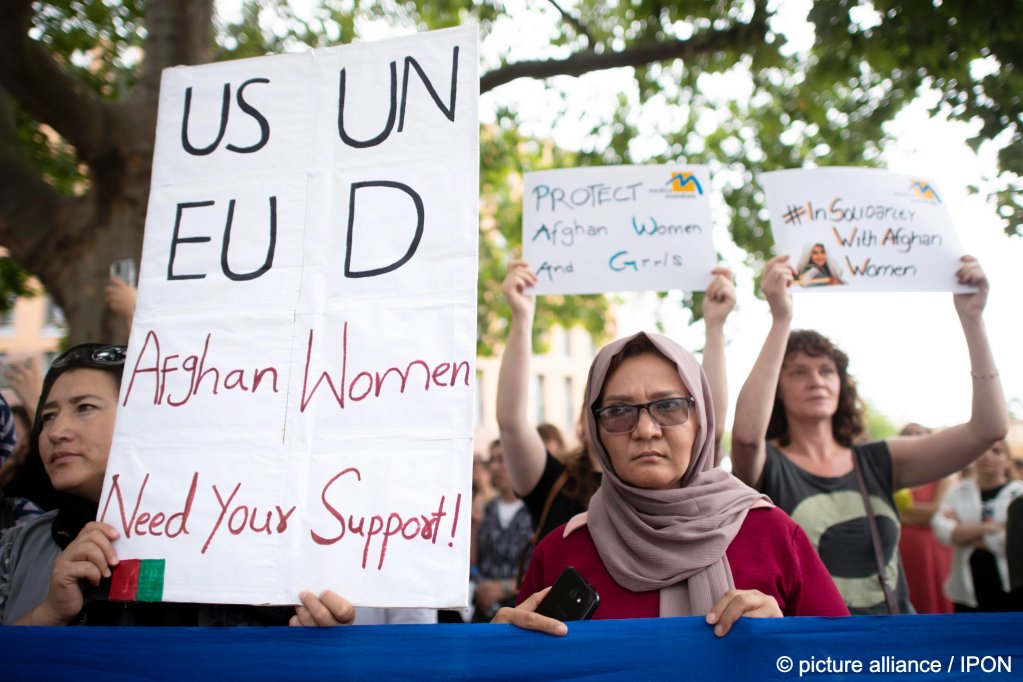 US UN
EU D
Afghan Women
Need Your Support!
PROTECT
Afghan Women
And Girls
medica
mondiale
#In Solidarity
With Afghan
Women
© picture alliance / IPON